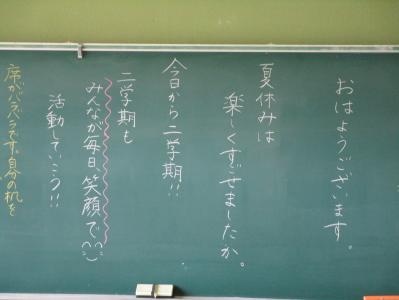 おはようございます。
夏休みは
楽しくすごせましたか。
今日から二学期!!
二学期も
みんなが毎日笑顔で
活動していこう!!
席がバラバラです。自分の机を